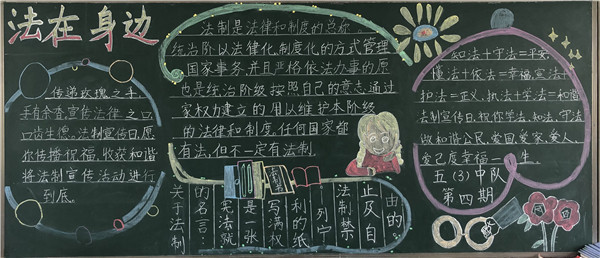 法在身边
传递玫瑰之手,
手有余香,宣传法律之口
口齿生德。法制宣传日,愿
你传播祝福,收获和谐
将法制宣传活动进行
到底。
法制是法律和制度的总称
统治阶以法律化,制度化的方式管理
国家事务,并且严格依法办事的原
也是统治阶级按照自己的意志通过
家权力建立的用以维护本阶级
的法律和制度,任何国家都
有法,但不一定有法制.
关于法制
的名言:
宪法就
是一张
写满权
利的纸
列宁
法制禁
止及自
由的
知法+守法=平安,
懂法+依法=幸福,宣法+
护法=正义,执法+学法=和谐
法制宣传日,祝你学法,知法,守法
做和谐公民,爱国,爱家,爱人,
爱己度幸福一生
五(3)中队
第四期